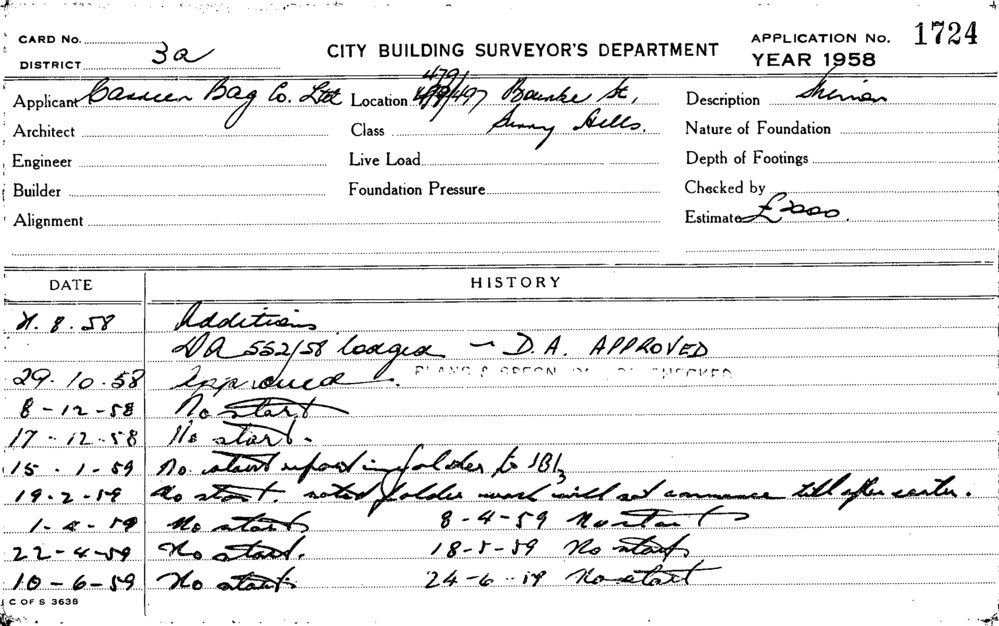 CARD No.
DISTRICT 3a
CITY BUILDING SURVEYOR'S DEPARTMENT
APPLICATION No. 1724
YEAR 1958
Applicant Bag Co. Ltd Location 479/497 Bourke St,
Description
Architect
Class Surry Hills.
Nature of Foundation
Engineer
Live Load
Depth of Footings
Builder
Foundation Pressure
Checked by
Alignment
Estimate £2000.
DATE HISTORY
8.58 Additions
DA 552/58 lodged - D.A. APPROVED
29.10.58 Approved. PLANS & SPECN CHECKED
8-12-58 No start
17-12-58 No start.
15.1-59 No start report in folder to
19-2-59 No start. noted folder work will not commence till after easter.
1-4-59 No start 8-4-59 No start
22-4-59 No start. 18-5-59 No start
10-6-59 No start. 24-6-59 No start
C OF S 3638